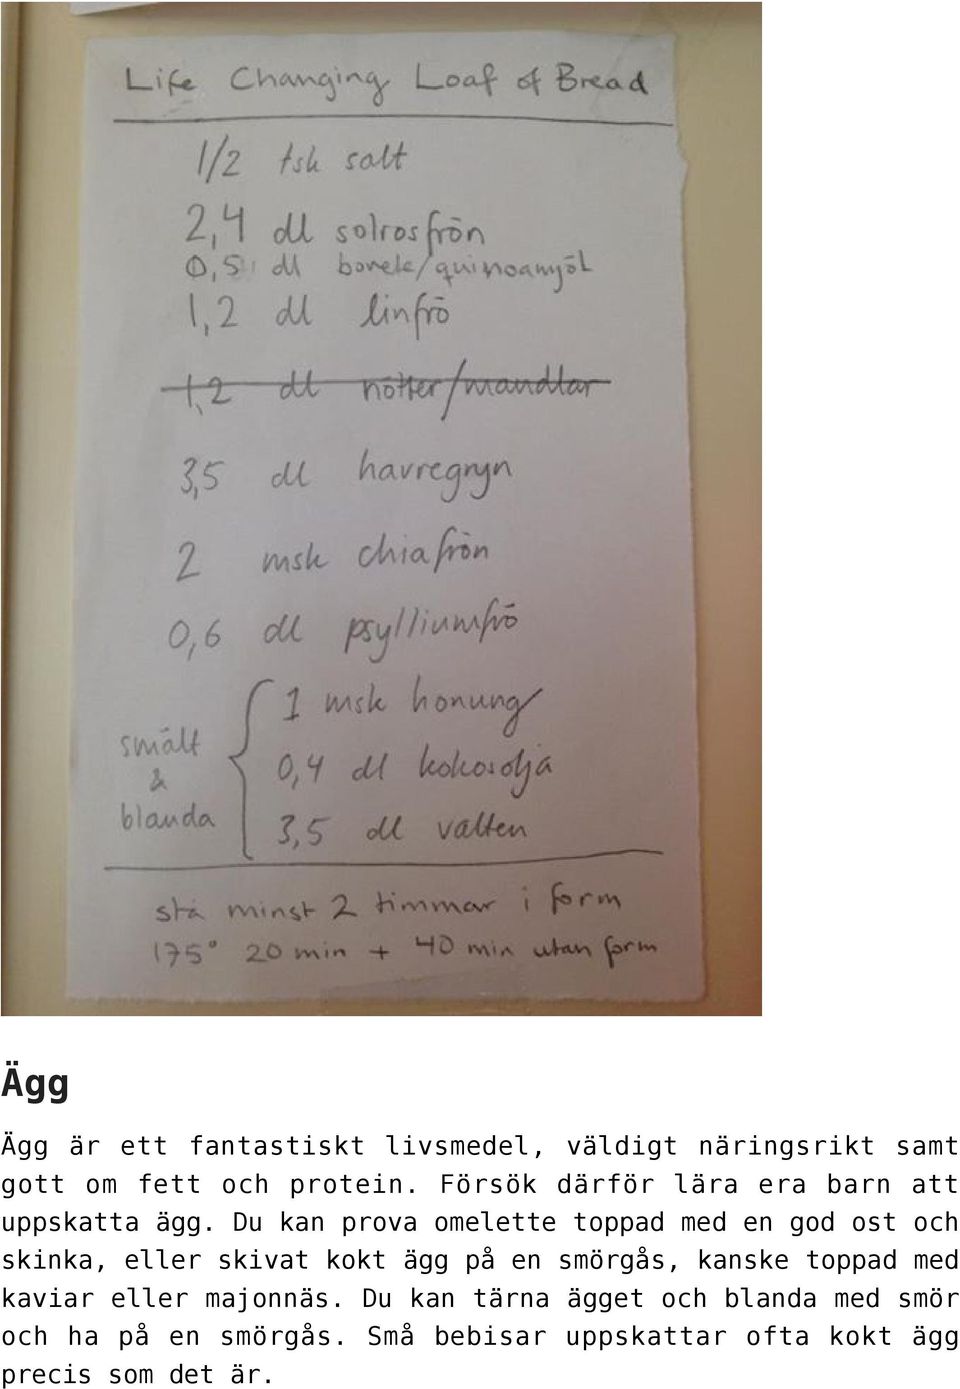 Life Changing Loaf of Bread
1/2 tsk salt
2,4 dl solrosfrön
0,5 dl bovete/quinoamjöl
1,2 dl linfrö
1,2 dl nötter/mandlar
3,5 dl havregryn
2 msk chiafrön
0,6 dl psylliumfrö
smält & blanda { 1 msk honung
0,4 dl kokosolja
3,5 dl vatten
stå minst 2 timmar i form
175° 20 min + 40 min utan form
Ägg
Ägg är ett fantastiskt livsmedel, väldigt näringsrikt samt
gott om fett och protein. Försök därför lära era barn att
uppskatta ägg. Du kan prova omelette toppad med en god ost och
skinka, eller skivat kokt ägg på en smörgås, kanske toppad med
kaviar eller majonnäs. Du kan tärna ägget och blanda med smör
och ha på en smörgås. Små bebisar uppskattar ofta kokt ägg
precis som det är.